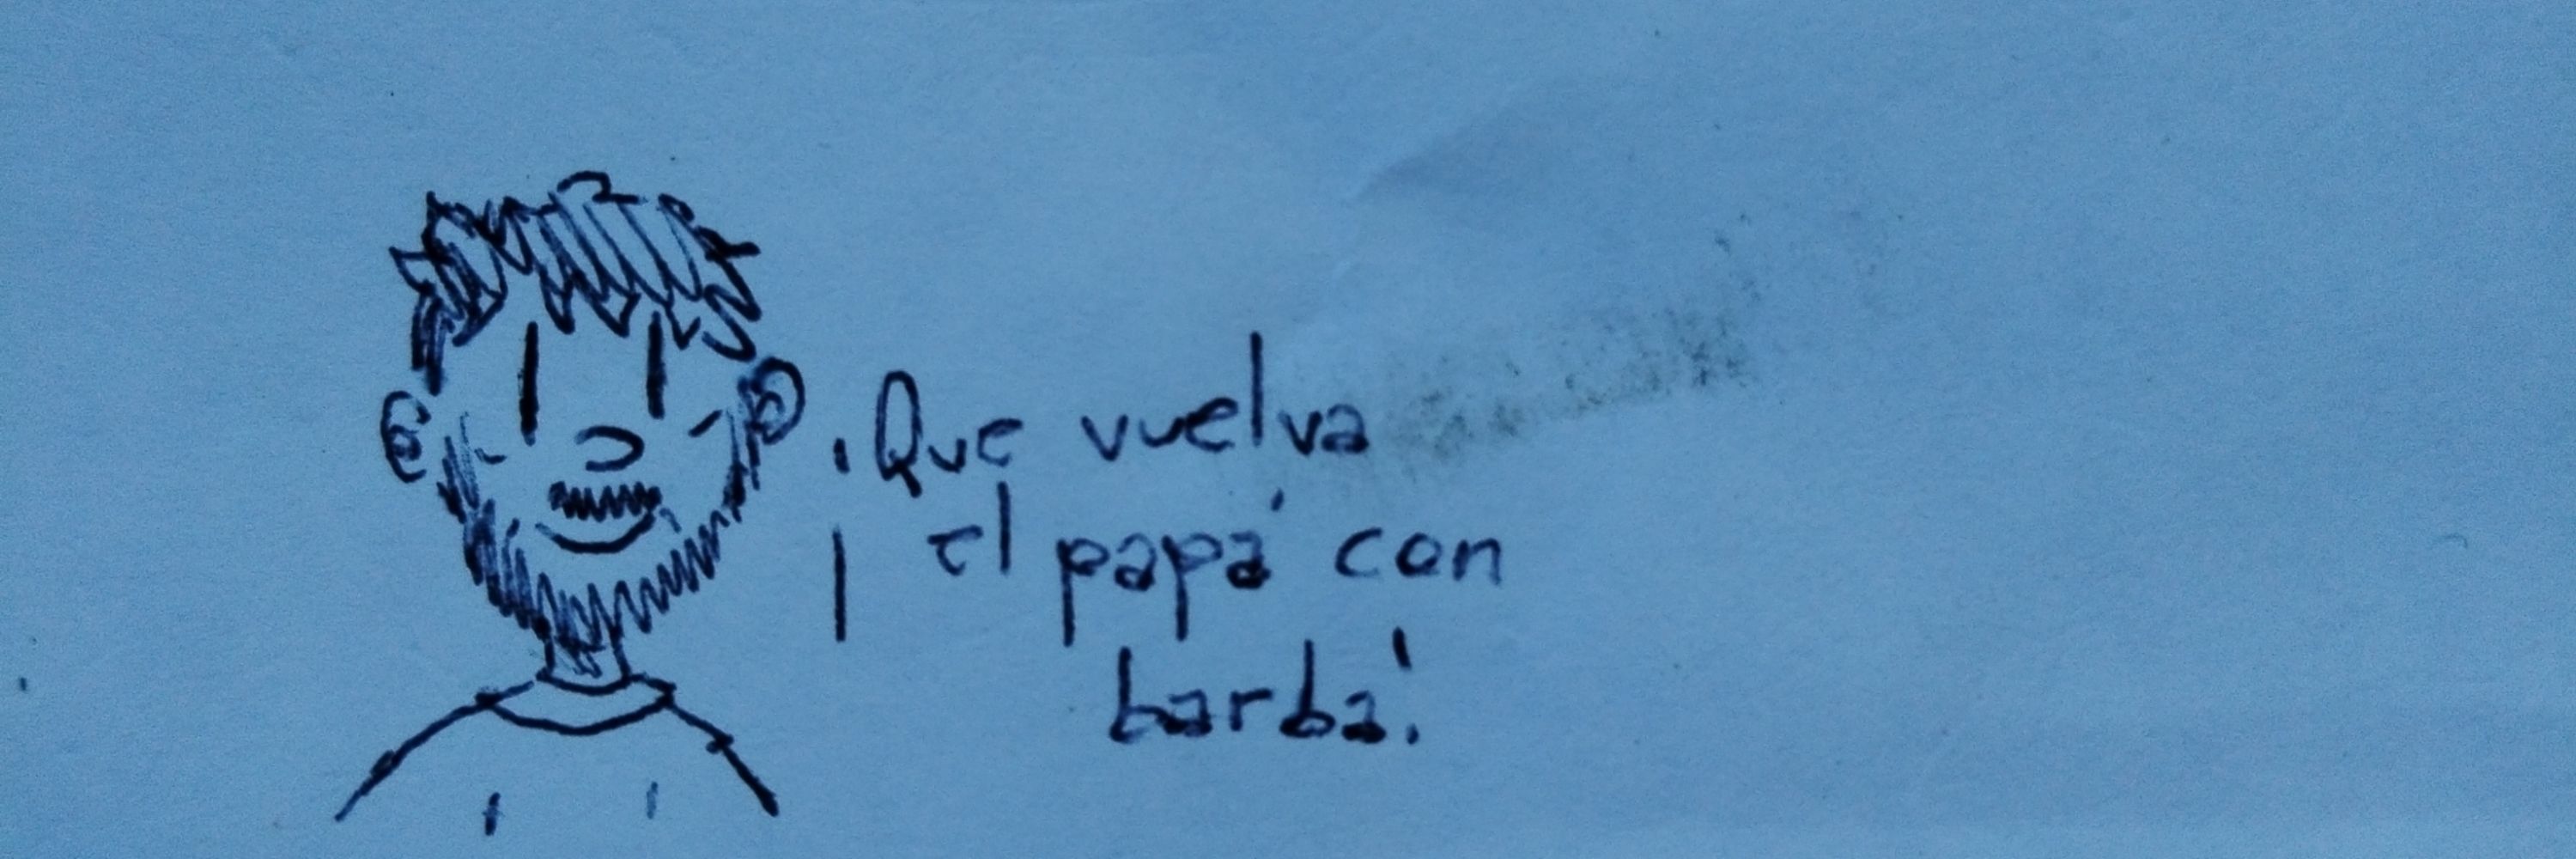 ¡Que vuelva
el papá con
barba!